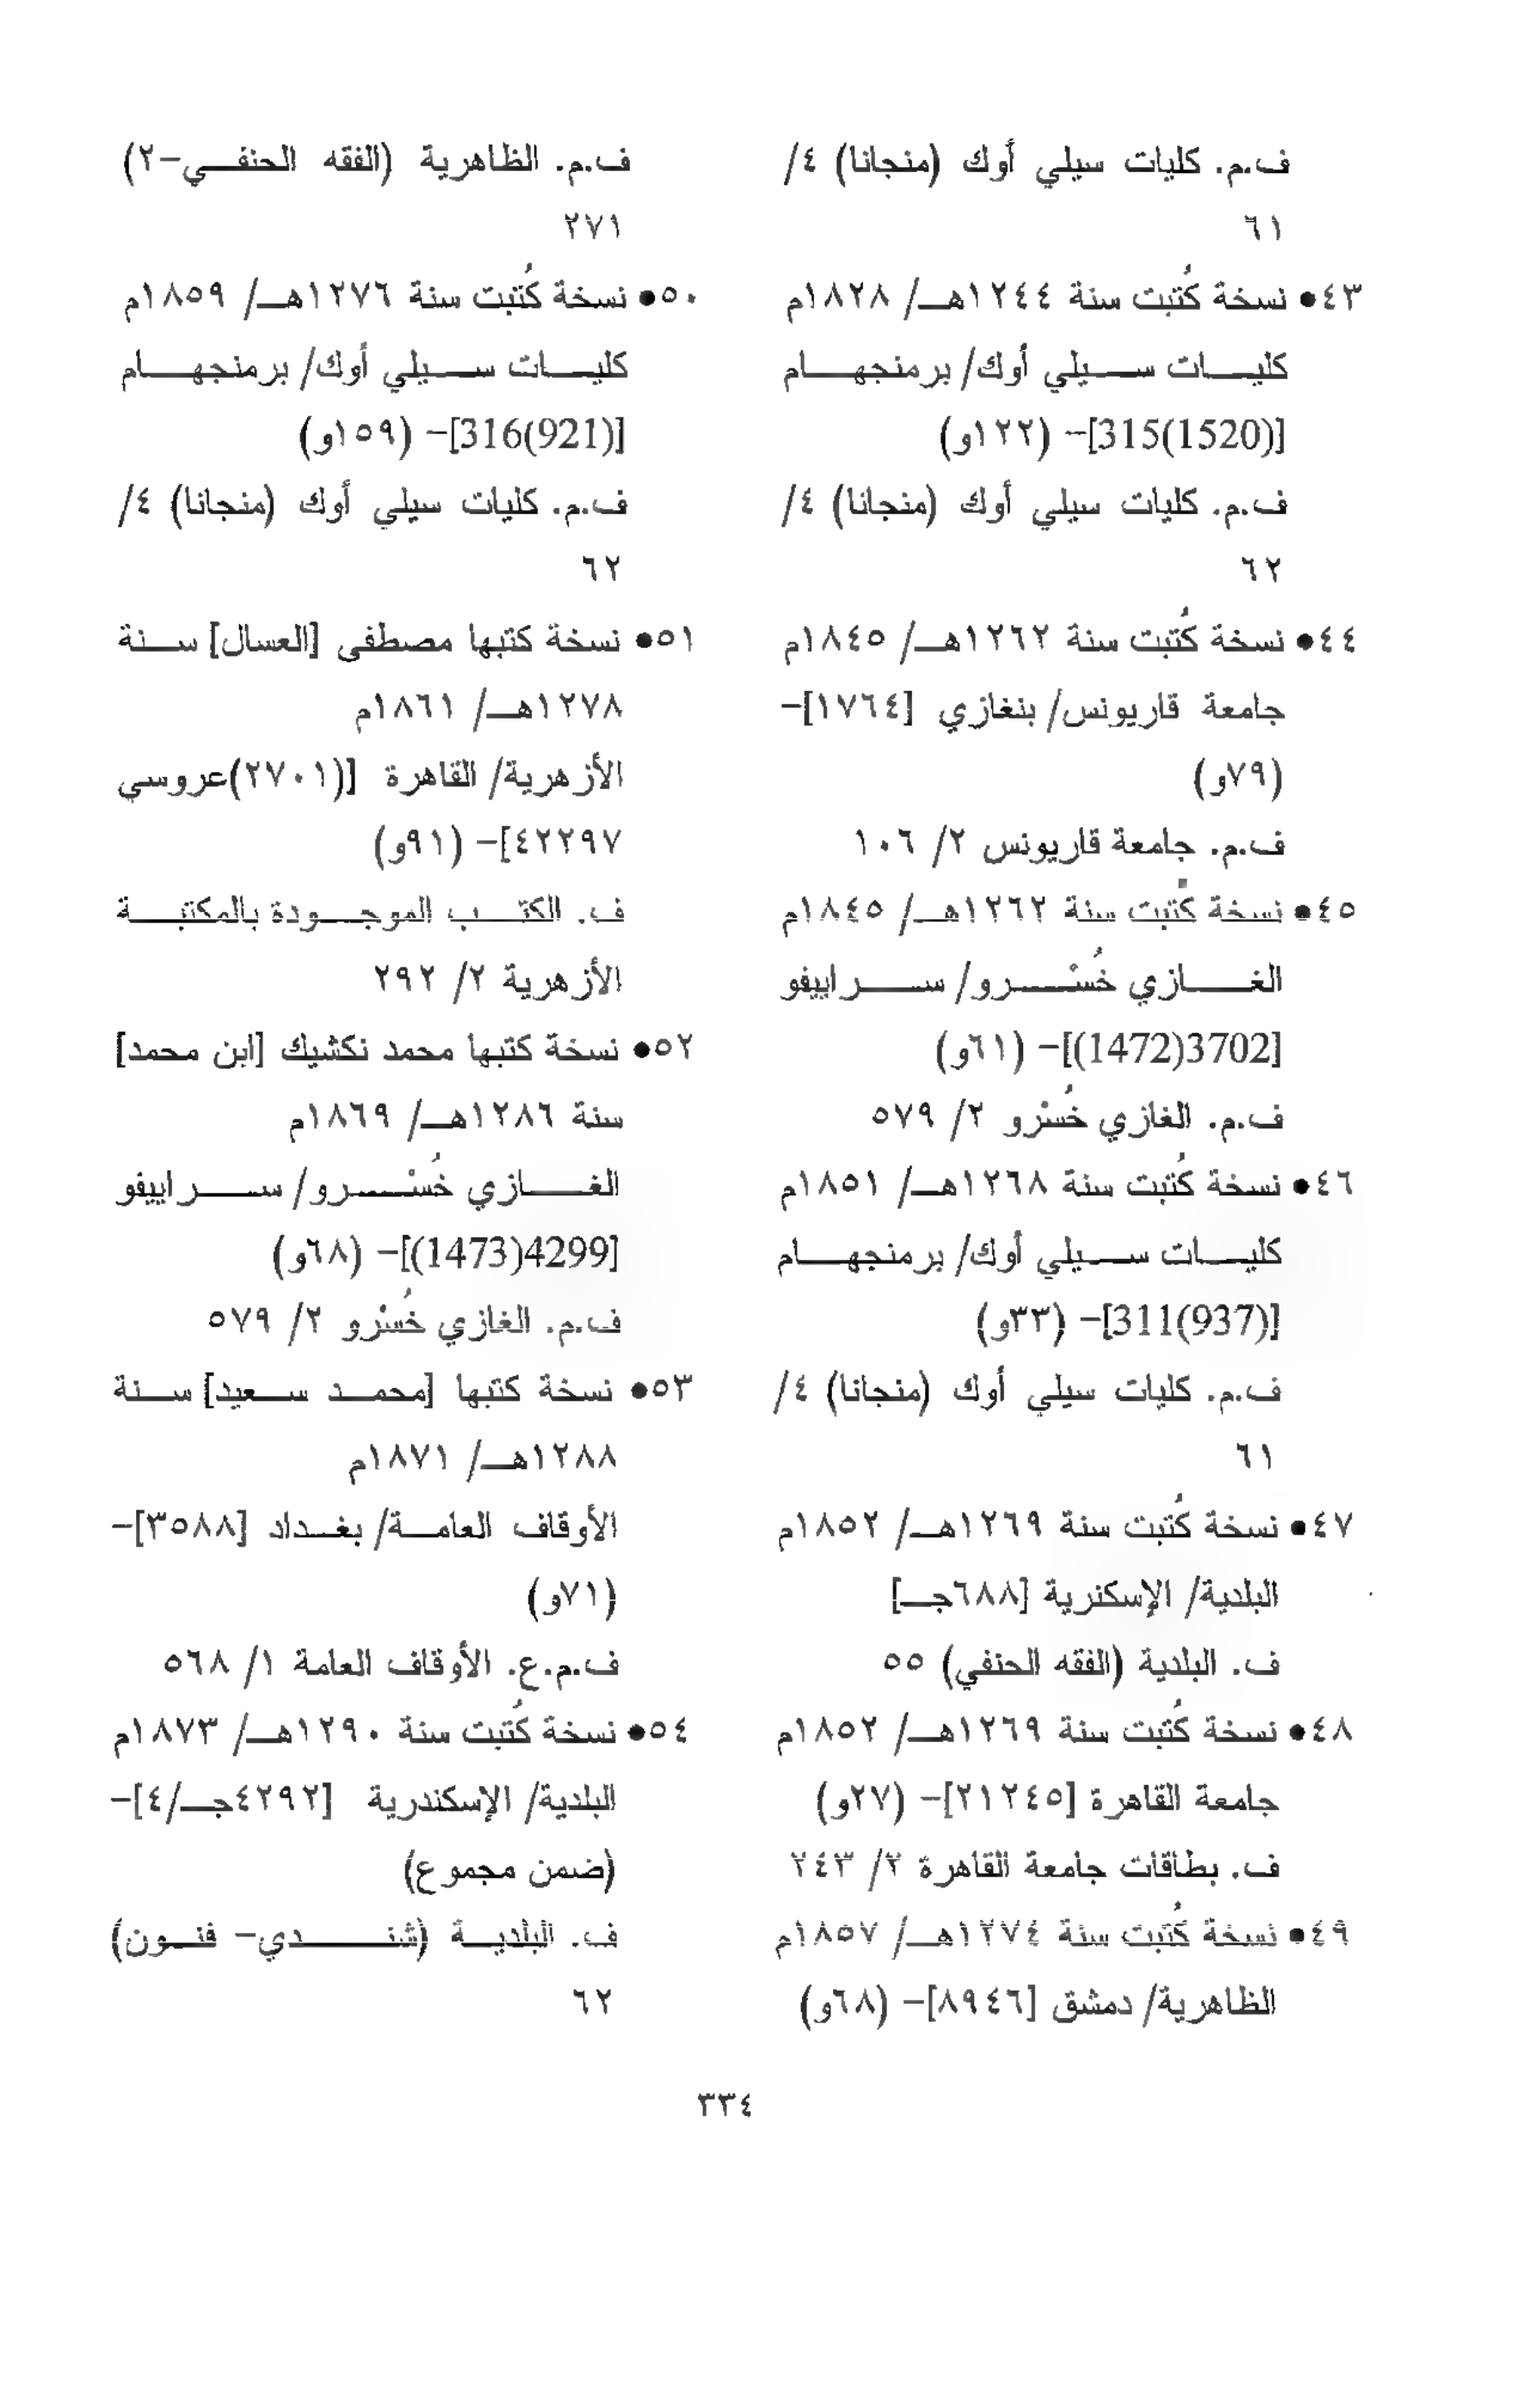 ف.م. كليات سيلي أوك (منجانا) ٤/
٦١
٤٣• نسخة كُتبت سنة ١٢٤٤هـ/ ١٨٢٨م
كليات سيلي أوك/ برمنجهام
[315(1520)]– (١٢٢و)
ف.م. كليات سيلي أوك (منجانا) ٤/
٦٢
٤٤• نسخة كُتبت سنة ١٢٦٢هـ/ ١٨٤٥م
جامعة قاريونس/ بنغازي [١٧٦٤]–
(٧٩و)
ف.م. جامعة قاريونس ٢/ ١٠٦
٤٥• نسخة كُتبت سنة ١٢٦٢هـ/ ١٨٤٥م
الغازي خُسْرو/ سراييفو
[3702(1472)]– (٦١و)
ف.م. الغازي خُسْرو ٢/ ٥٧٩
٤٦• نسخة كُتبت سنة ١٢٦٨هـ/ ١٨٥١م
كليات سيلي أوك/ برمنجهام
[311(937)]– (٣٣و)
ف.م. كليات سيلي أوك (منجانا) ٤/
٦١
٤٧• نسخة كُتبت سنة ١٢٦٩هـ/ ١٨٥٢م
البلدية/ الإسكنرية [٦٨٨جـ]
ف. البلدية (الفقه الحنفي) ٥٥
٤٨• نسخة كُتبت سنة ١٢٦٩هـ/ ١٨٥٢م
جامعة القاهرة [٢١٢٤٥]– (٢٧و)
ف. بطاقات جامعة القاهرة ٢/ ٢٤٣
٤٩• نسخة كُتبت سنة ١٢٧٤هـ/ ١٨٥٧م
الظاهرية/ دمشق [٨٩٤٦]– (٦٨و)
ف.م. الظاهرية (الفقه الحنفي–٢)
٢٧١
٥٠• نسخة كُتبت سنة ١٢٧٦هـ/ ١٨٥٩م
كليات سيلي أوك/ برمنجهام
[316(921)]– (١٥٩و)
ف.م. كليات سيلي أوك (منجانا) ٤/
٦٢
٥١• نسخة كتبها مصطفى [العسال] سنة
١٢٧٨هـ/ ١٨٦١م
الأزهرية/ القاهرة [(٢٧٠١)عروسي
٤٢٢٩٧]– (٩١و)
ف. الكتب الموجودة بالمكتبة
الأزهرية ٢/ ٢٩٢
٥٢• نسخة كتبها محمد نكشيك [ابن محمد]
سنة ١٢٨٦هـ/ ١٨٦٩م
الغازي خُسْرو/ سراييفو
[4299(1473)]– (٦٨و)
ف.م. الغازي خُسْرو ٢/ ٥٧٩
٥٣• نسخة كتبها [محمد سعيد] سنة
١٢٨٨هـ/ ١٨٧١م
الأوقاف العامة/ بغداد [٣٥٨٨]–
(٧١و)
ف.م.ع. الأوقاف العامة ١/ ٥٦٨
٥٤• نسخة كُتبت سنة ١٢٩٠هـ/ ١٨٧٣م
البلدية/ الإسكندرية [٤٢٩٢جـ/٤]–
(ضمن مجموع)
ف. البلدية (شندي– فنون)
٦٢
٣٣٤